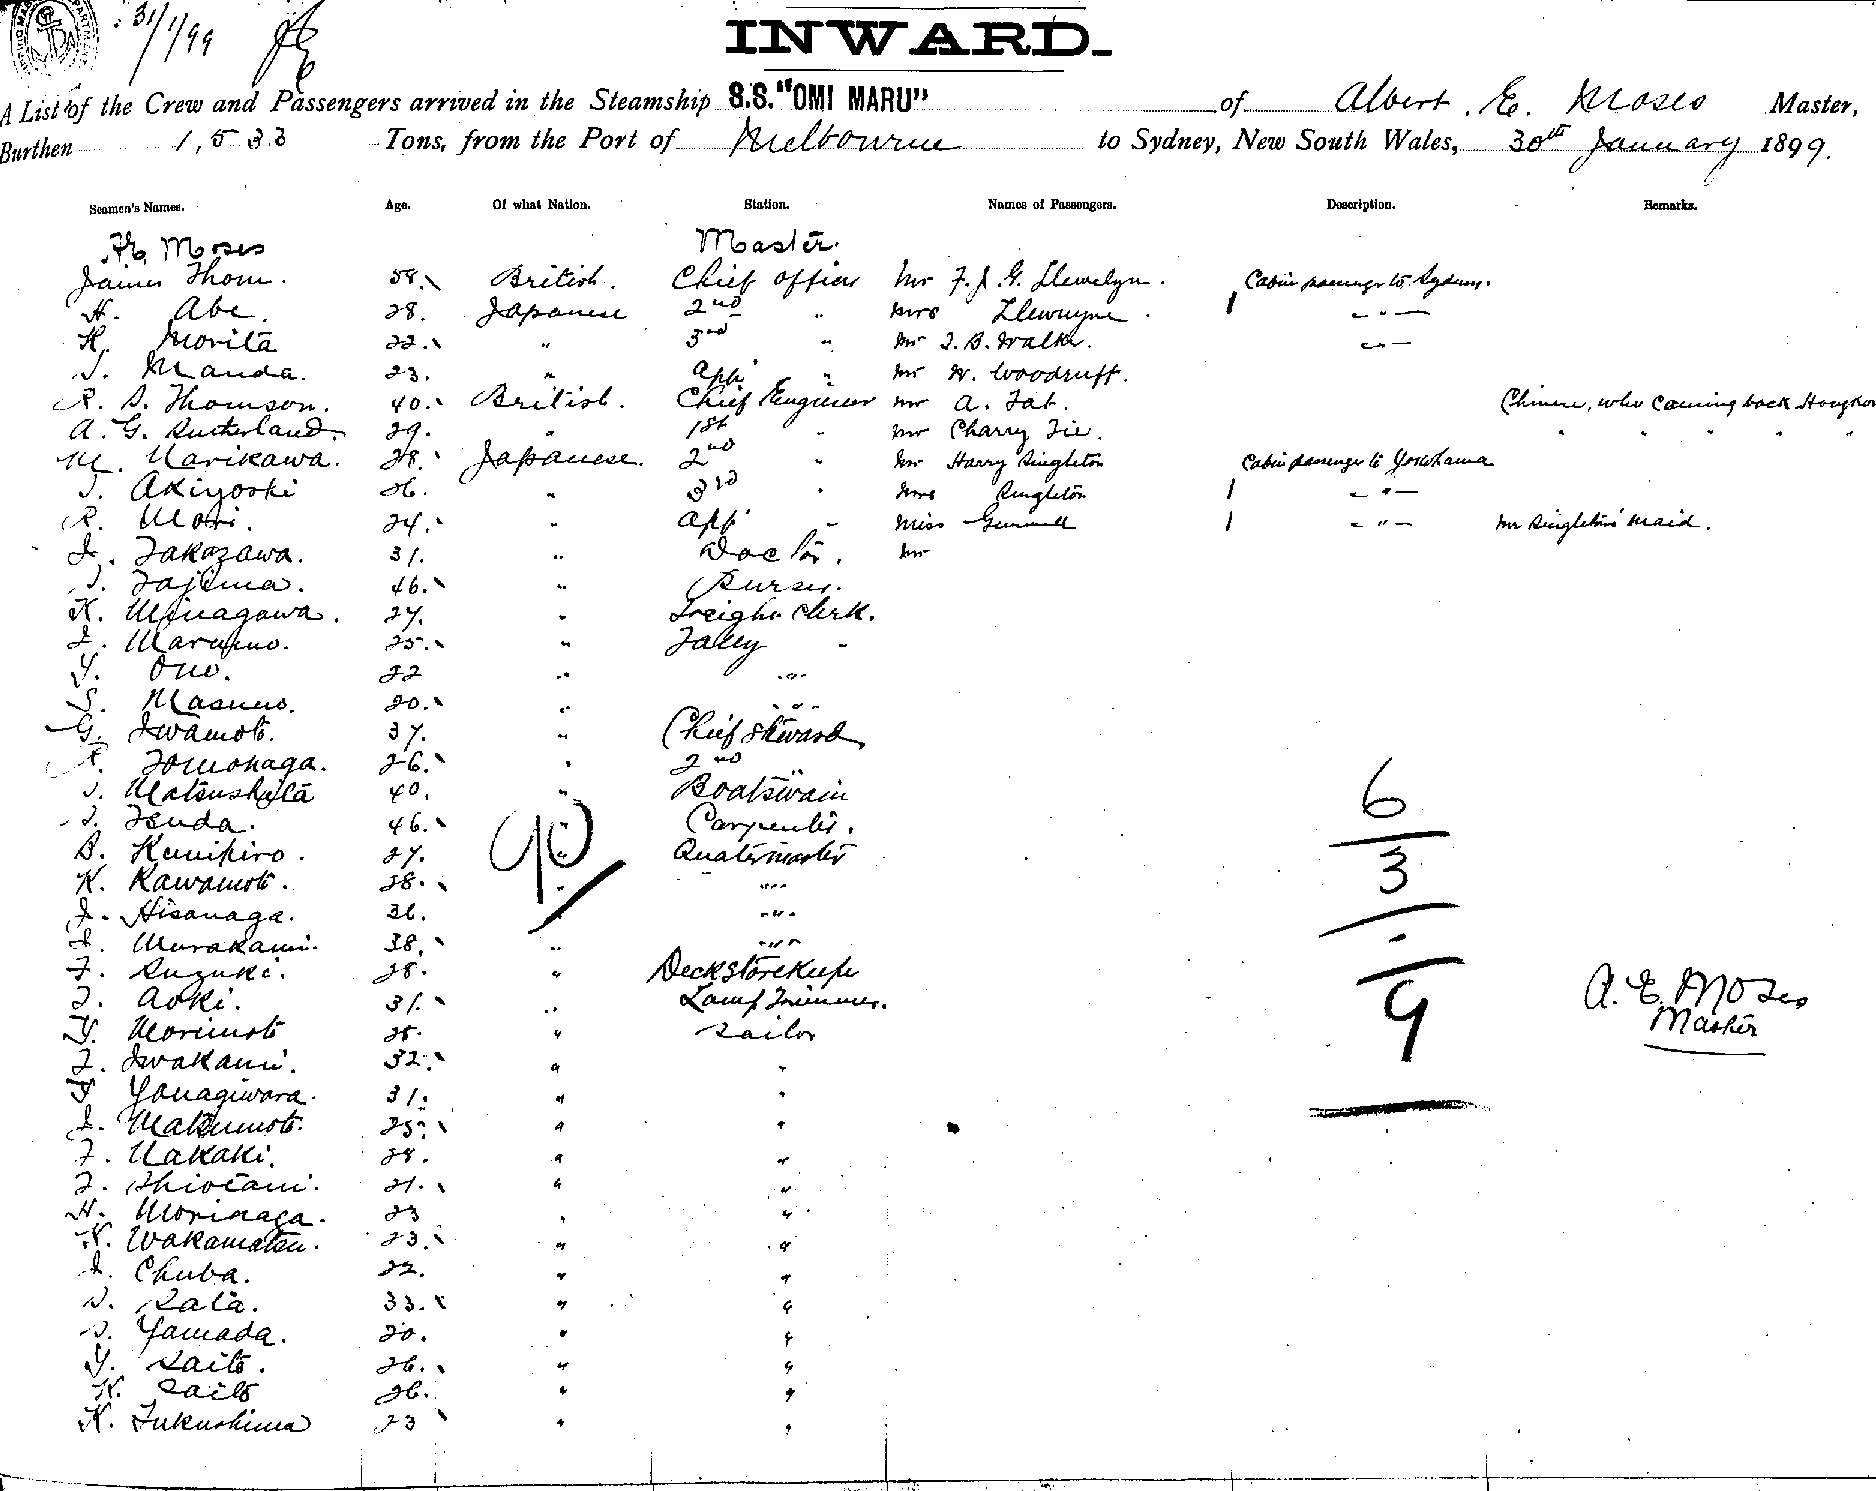 31/1/99
INWARD.
A List of the Crew and Passengers arrived in the Steamship S.S. "OMI MARU" of Albert. E. Moses Master,
Burthen 1,533 Tons, from the Port of Melbourne to Sydney, New South Wales, 30th January 1899.
Seamen's Names. Age. Of what Nation. Station. Names of Passengers. Description. Remarks.
Moses Master.
James Thom. 58. British. Chief officer Mr F. J. G. Llewelyn. Cabin passenger to Sydney.
H. Abe. 28. Japanese 2nd " Mrs Llewelyne. - " -
K. Morita 22. " 3rd " Mr J. B. Walker. - " -
S. Manda. 23. " App " Mr W. Woodruff.
R. S. Thomson. 40. British. Chief Engineer Mr A. Tat. Chinese, who coming back Hongkon
A. G. Sutherland. 29. " 1st " Mr Charry Tie. " " " "
M. Narikawa. 28. Japanese. 2nd " Mr Harry Singleton Cabin passenger to Yokohama
T. Akiyoshi 26. " 3rd " Mrs Singleton - " -
R. Mori. 24. " App " Miss - " - Mr Singleton's maid.
I. Takazawa. 31. " Doctor. Mr
T. Tajima. 46. " Purser.
K. Minagawa. 27. " Freight Clerk.
I. Marumo. 25. " Tally "
Y. Ono. 22 " " "
S. Masuno. 20. " " "
G. Iwamoto. 37. " Chief Steward
K. Tomonaga. 26. " 2nd "
T. Matsushita 40. " Boatswain
T. Tsuda. 46. " Carpenter.
S. Kunihiro. 27. " Quatermaster
K. Kawamoto. 28. " " "
I. Hisanaga. 36. " " "
I. Murakami. 38. " " "
T. Suzuki. 28. " Deckstorekeeper
T. Aoki. 31. " Lamp Trimmer.
Y. Morimoto 25. " Sailor
T. Iwakami. 32. " "
Y. Yanagiwara. 31. " "
I. Matsumoto. 25. " "
T. Nakaki. 28. " "
T. Shiotani. 21. " "
H. Morinaga. 23 " "
K. Wakamatsu. 23. " "
I. Chuba. 22. " "
S. Sata. 33. " "
S. Yamada. 20. " "
Y. Saito. 26. " "
K. Saito 26. " "
K. Fukushima 23 " "
90
6
3
9
A. E. Moses
Master